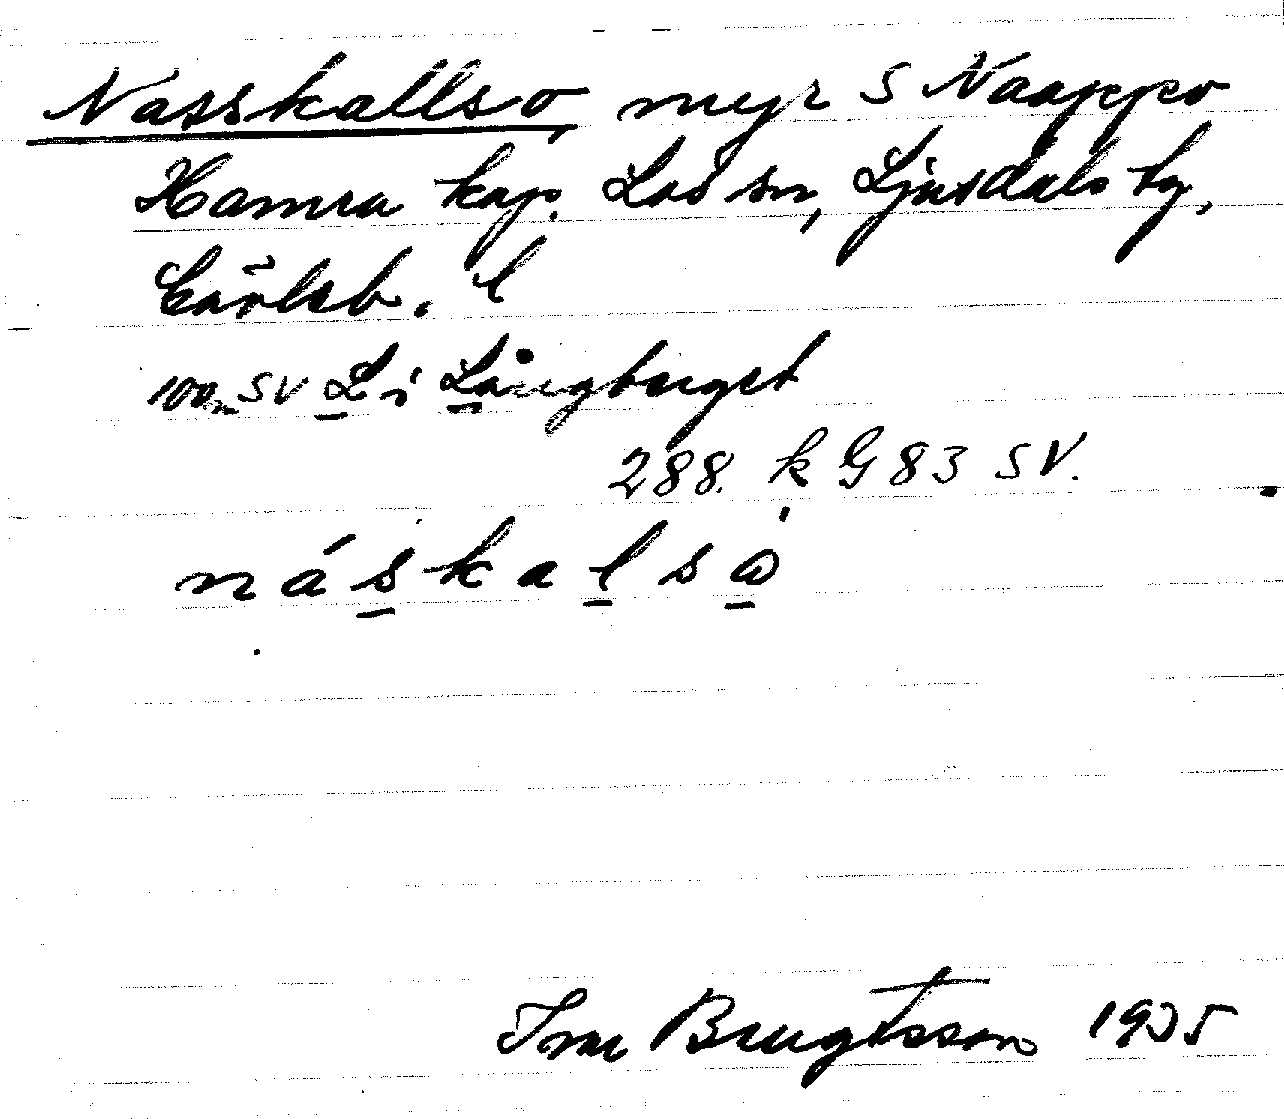 Nasskallso, myr S Naappo
Hamra kap. Los sn, Ljusdals tg,
Gävleb. l
100m SV L i Långberget
288. k G 83 SV.
náskalså
Bengtsson 1935